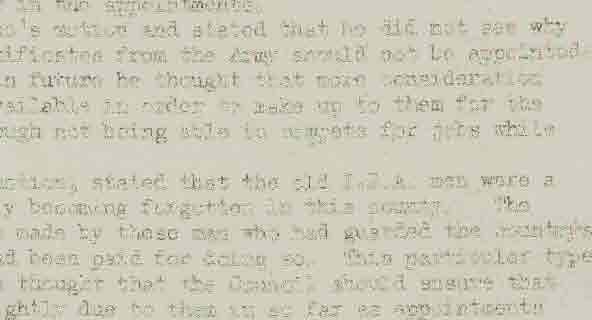 in the appointments.
's motion and stated that he did not see why
tificates from the Army should not be appointed.
n future he thought that more consideration
vailable in order to make up to them for the
ough not being able to compete for jobs while
otion, stated that the old I.R.A. men were a
y becoming forgotten in this county. The
made by these men who had guarded the country's
ad been paid for doing so. This particular type
thought that the Council should ensure that
ghtly due to them in so far as appointments